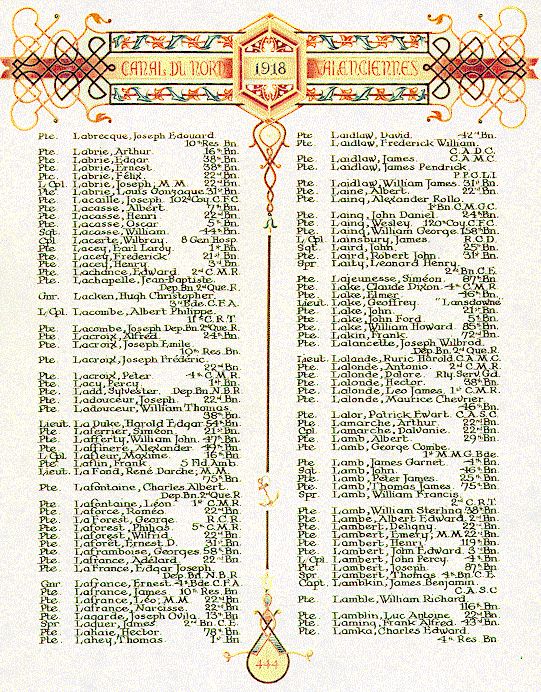 CANAL DU NORD
1918
VALENCIENNES
Pte. Labrecque, Joseph Edouard
10th Res. Bn.
Pte. Labrie, Arthur 16th Bn.
Pte. Labrie, Edgar 38th Bn.
Pte. Labrie, Ernest 38th Bn.
Pte. Labrie, Félix 22nd Bn.
L. Cpl. Labrie, Joseph, M.M. 22nd Bn.
Pte. Labrie, Louis Gonzague 31st Bn.
Pte. Lacaille, Joseph 102nd Coy. C.F.C.
Pte. Lacasse, Albert 7th Bn.
Pte. Lacasse, Henri 22nd Bn.
Pte. Lacasse, Oscar 5th Bn.
Sgt. Lacasse, William 44th Bn.
Cpl. Lacerte, Wilbray 8 Gen Hosp.
Pte. Lacey, Earl Lardy 1st Bn.
Pte. Lacey, Frederick 21st Bn.
Pte. Lacey, Henry 3rd Bn.
Pte. Lachance, Edward 2nd C.M.R.
Pte. Lachapelle, Jean-Baptiste
Dep. Bn. 2nd Que. R.
Gnr. Lacken, Hugh Christopher
3rd Bde. C.F.A.
L. Cpl. Lacombe, Albert Philippe
1st C.R.T.
Pte. Lacombe, Joseph Dep. Bn. 2nd Que. R.
Pte. Lacroix, Alfred 24th Bn.
Pte. Lacroix, Joseph Emile
10th Res. Bn.
Pte. Lacroix, Joseph Fréderic
22nd Bn.
Pte. Lacroix, Peter 4th C.M.R.
Pte. Lacy, Percy 1st Bn.
Pte. Ladd, Sylvester Dep. Bn. N.B.R
Pte. Ladouceur, Joseph 22nd Bn.
Pte. Ladouceur, William Thomas
38th Bn.
Lieut. La Duke, Harold Edgar 54th Bn.
Pte. Laferrier, Siméon 21st Bn.
Pte. Lafferty, William John 47th Bn.
Pte. Laffinère, Alexander 49th Bn.
L. Cpl. Lafleur, Maxime 16th Bn.
Pte. Laflin, Frank 5 Fld Amb.
Lieut. La Fond, René Darche, M.M.
75th Bn.
Pte. Lafontaine, Charles Albert
Dep. Bn. 2nd Que. R
Pte. Lafontaine, Léon 1st C.M.R.
Pte. Laforce, Roméo 22nd Bn.
Pte. La Forest, George R.C.R.
Pte. Laforest, Philias 5th C.M.R.
Pte. Laforest, Wilfrid 22nd Bn.
Pte. Laforet, Ernest D. 31st Bn.
Pte. Laframboise, Georges 58th Bn.
Pte. Lafrance, Adélard 22nd Bn.
Pte. La France, Edgar Joseph
Dep. Bn. N.B.R
Gnr. Lafrance, Ernest 4th Bde. C.F.A.
Pte. Lafrance, James 10th Res. Bn.
Pte. Lafrance, Léo, M.M. 22nd Bn.
Pte. Lafrance, Narcisse 22nd Bn.
Pte. Lagarde, Joseph Ovila 13th Bn.
Spr. Laguer, James 2nd Bn. C.E.
Pte. Lahaie, Hector 78th Bn.
Pte. Lahey, Thomas 1st Bn.
Pte. Laidlaw, David 42nd Bn.
Pte. Laidlaw, Frederick William
C.A.D.C.
Pte. Laidlaw, James C.A.M.C.
Pte. Laidlaw, James Pendrick
P.P.C.L.I.
Pte. Laidlaw, William James 31st Bn.
Pte. Laine, Albert 22nd Bn.
Pte. Laing, Alexander Rollo
1st Bn. C.M.G.C.
Pte. Laing, John Daniel 24th Bn.
Pte. Laing, Wesley 120th Coy. C.F.C.
Pte. Laing, William George 58th Bn.
L. Cpl. Lainsbury, James R.C.D.
Sgt. Laird, John 25th Bn.
Pte. Laird, Robert John 31st Bn.
Spr. Laity, Leonard Henry
2nd Bn. C.E.
Pte. Lajeunesse, Siméon 87th Bn.
Pte. Lake, Claude Dixon 4th C.M.R
Pte. Lake, Elmer 46th Bn.
Lieut. Lake, Geoffrey "Lansdowne"
Pte. Lake, John 21st Bn.
Pte. Lake, John Ford 54th Bn.
Pte. Lake, William Howard 85th Bn.
Pte. Lakin, Frank 72nd Bn.
Pte. Lalancette, Joseph Wilbrod
Dep. Bn. 2nd Que. R.
Lieut. Lalande, Ruric Harold C.A.M.C.
Pte. Lalonde, Antonio 2nd C.M.R.
Pte. Lalonde, Delare Rly. Serv. Gd.
Pte. Lalonde, Hector 38th Bn.
Pte. Lalonde, Leo James 1st C.M.R.
Pte. Lalonde, Maurice Chevrier
46th Bn.
Pte. Lalor, Patrick Ewart C.A.S.C
Pte. Lamarche, Arthur 22nd Bn.
Cpl. Lamarche, Dalvanie 22nd Bn.
Pte. Lamb, Albert 29th Bn.
Pte. Lamb, George Combe
1st M.M.G. Bde.
Pte. Lamb, James Garnet 4th Bn.
Sgt. Lamb, John 46th Bn.
Pte. Lamb, Peter James 25th Bn.
Pte. Lamb, Thomas James 75th Bn.
Spr. Lamb, William Francis
2nd C.R.T.
Pte. Lamb, William Sterling 38th Bn.
Pte. Lambe, Albert Edward 2nd Bn.
Pte. Lambert, Deligny 22nd Bn.
Pte. Lambert, Emery, M.M. 22nd Bn.
Pte. Lambert, Henri 119th Bn.
Pte. Lambert, John Edward 3rd Bn.
L. Cpl. Lambert, John Percy 4th Bn.
Pte. Lambert, Joseph 87th Bn.
Spr. Lambert, Thomas 4th Bn. C.E.
Capt. Lambkin, James Benjamin
C.A.S.C
Pte. Lamble, William Richard
116th Bn.
Pte. Lamblin, Luc Antoine 22nd Bn.
Pte. Laming, Frank Alfred 43rd Bn.
Pte. Lamka, Charles Edward
4th Res. Bn
444